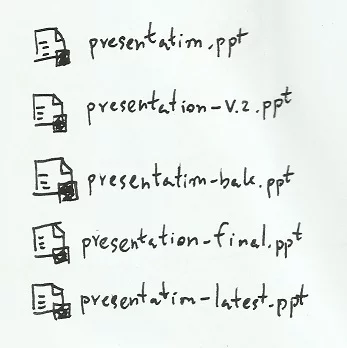 presentation.ppt
presentation-v.2.ppt
presentation-bak.ppt
presentation-final.ppt
presentation-latest.ppt